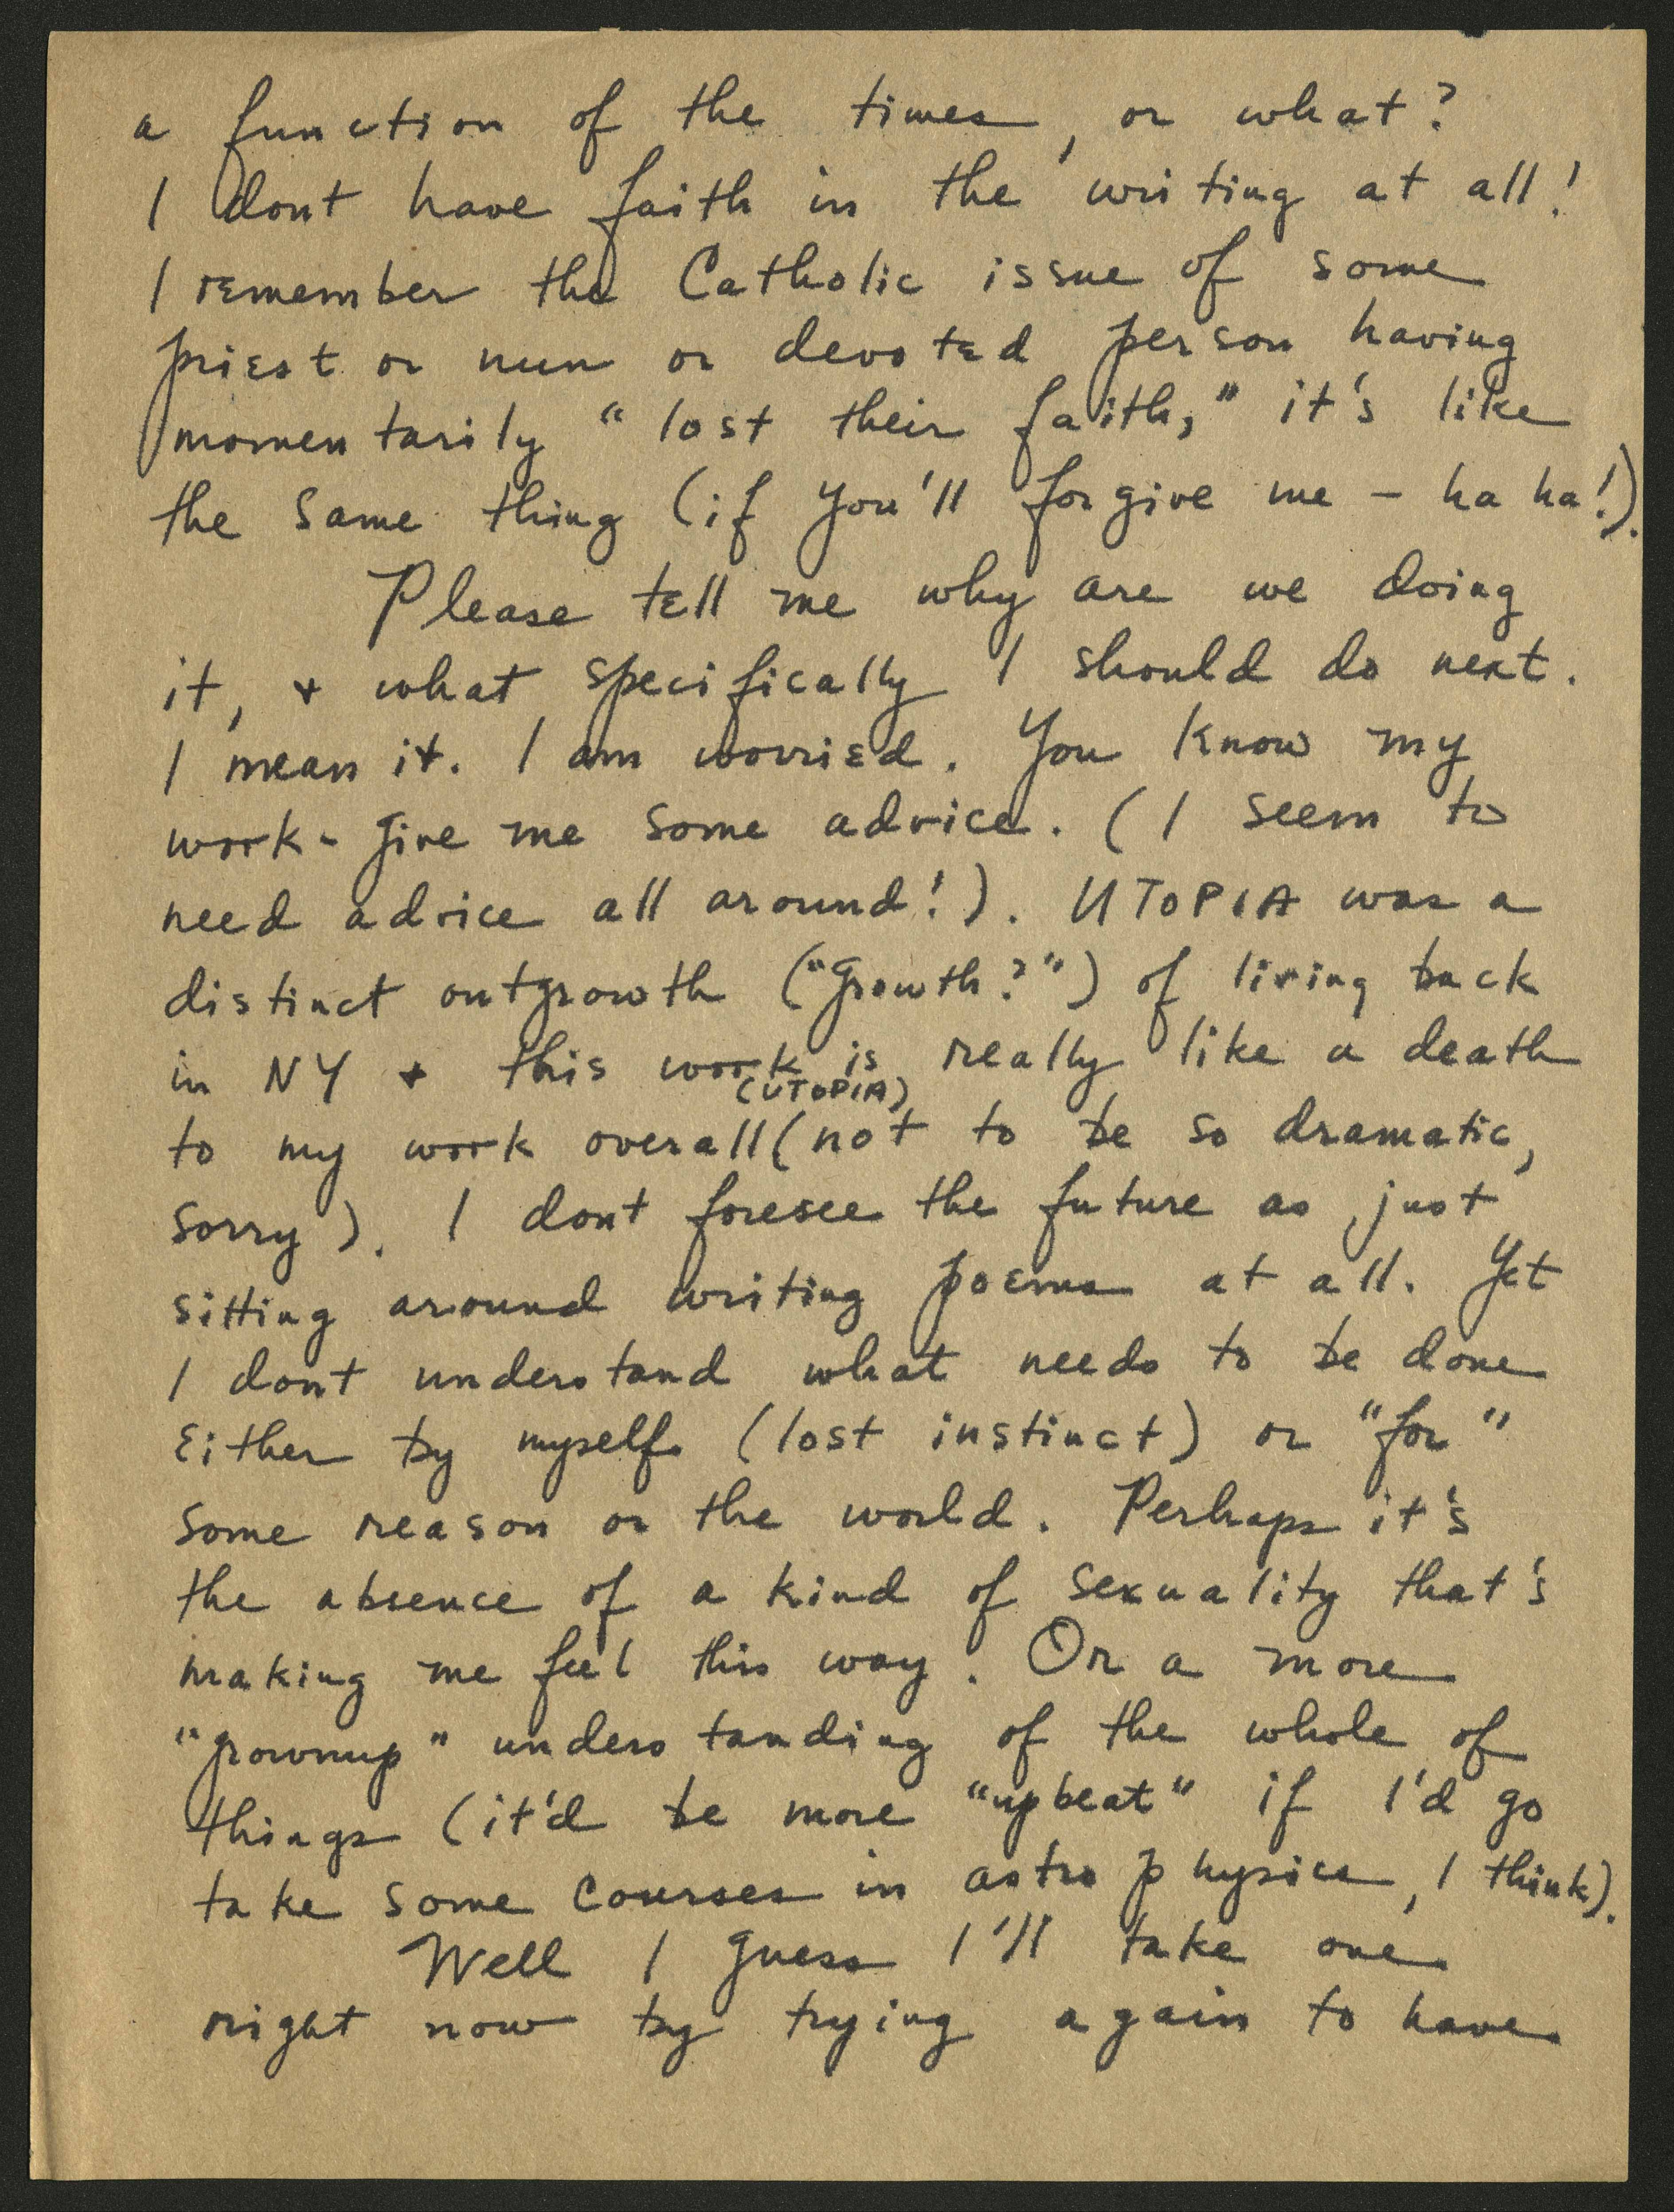 a function of the times, or what?
I dont have faith in the writing at all!
I remember the Catholic issue of some
priest or nun or devoted person having
momentarily "lost their faith," it's like
the same thing (if you'll forgive me – ha ha!).
Please tell me why are we doing
it, & what specifically I should do next.
I mean it. I am worried. You know my
work - give me some advice. (I seem to
need advice all around!). UTOPIA was a
distinct outgrowth ("growth?") of living back
in NY & this work is really like a death
(UTOPIA)
to my work overall (not to be so dramatic,
sorry). I dont foresee the future as just
sitting around writing poems at all. Yet
I dont understand what needs to be done
either by myself (lost instinct) or "for"
some reason or the world. Perhaps it's
the absence of a kind of sexuality that's
making me feel this way. Or a more
"grownup" understanding of the whole of
things (it'd be more "upbeat" if I'd go
take some courses in astrophysics, I think).
Well I guess I'll take one
right now by trying again to have